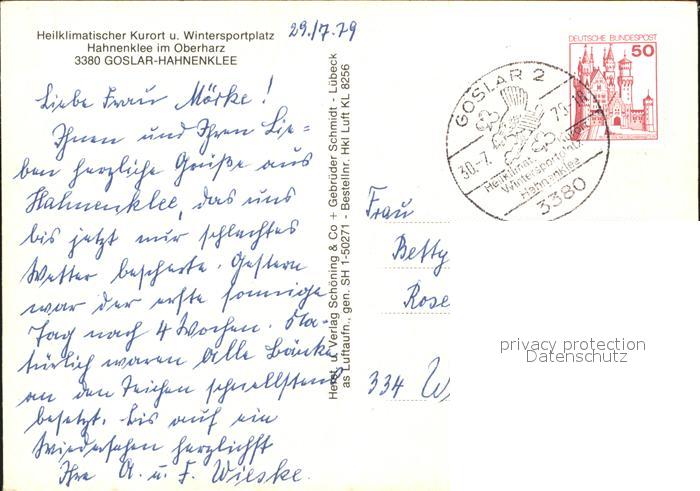 Heilklimatischer Kurort u. Wintersportplatz
Hahnenklee im Oberharz
3380 GOSLAR-HAHNENKLEE
29./7.79
Liebe Frau Mörke!
Ihnen und Ihren Lie-
ben herzliche Grüße aus
Hahnenklee, das uns
bis jetzt nur schlechtes
Wetter bescherte. Gestern
war der erste sonnige
Tag nach 4 Wochen. Na-
türlich waren alle Bänke
an den Teichen schnellstens
besetzt. Bis auf ein
Wiedersehen herzlichst
Ihre A. u. F. Wieske.
Herst. u. Verlag Schöning & Co + Gebrüder Schmidt - Lübeck
as Luftaufn., gen. SH 1-50271 - Bestellnr. Hkl Luft KL 8256
DEUTSCHE BUNDESPOST
50
GOSLAR 2
30.-7. 79.-18
Heilklimat.
Wintersportplatz
Hahnenklee
3380
Frau
Betty
Rose
334 W
privacy protection
Datenschutz